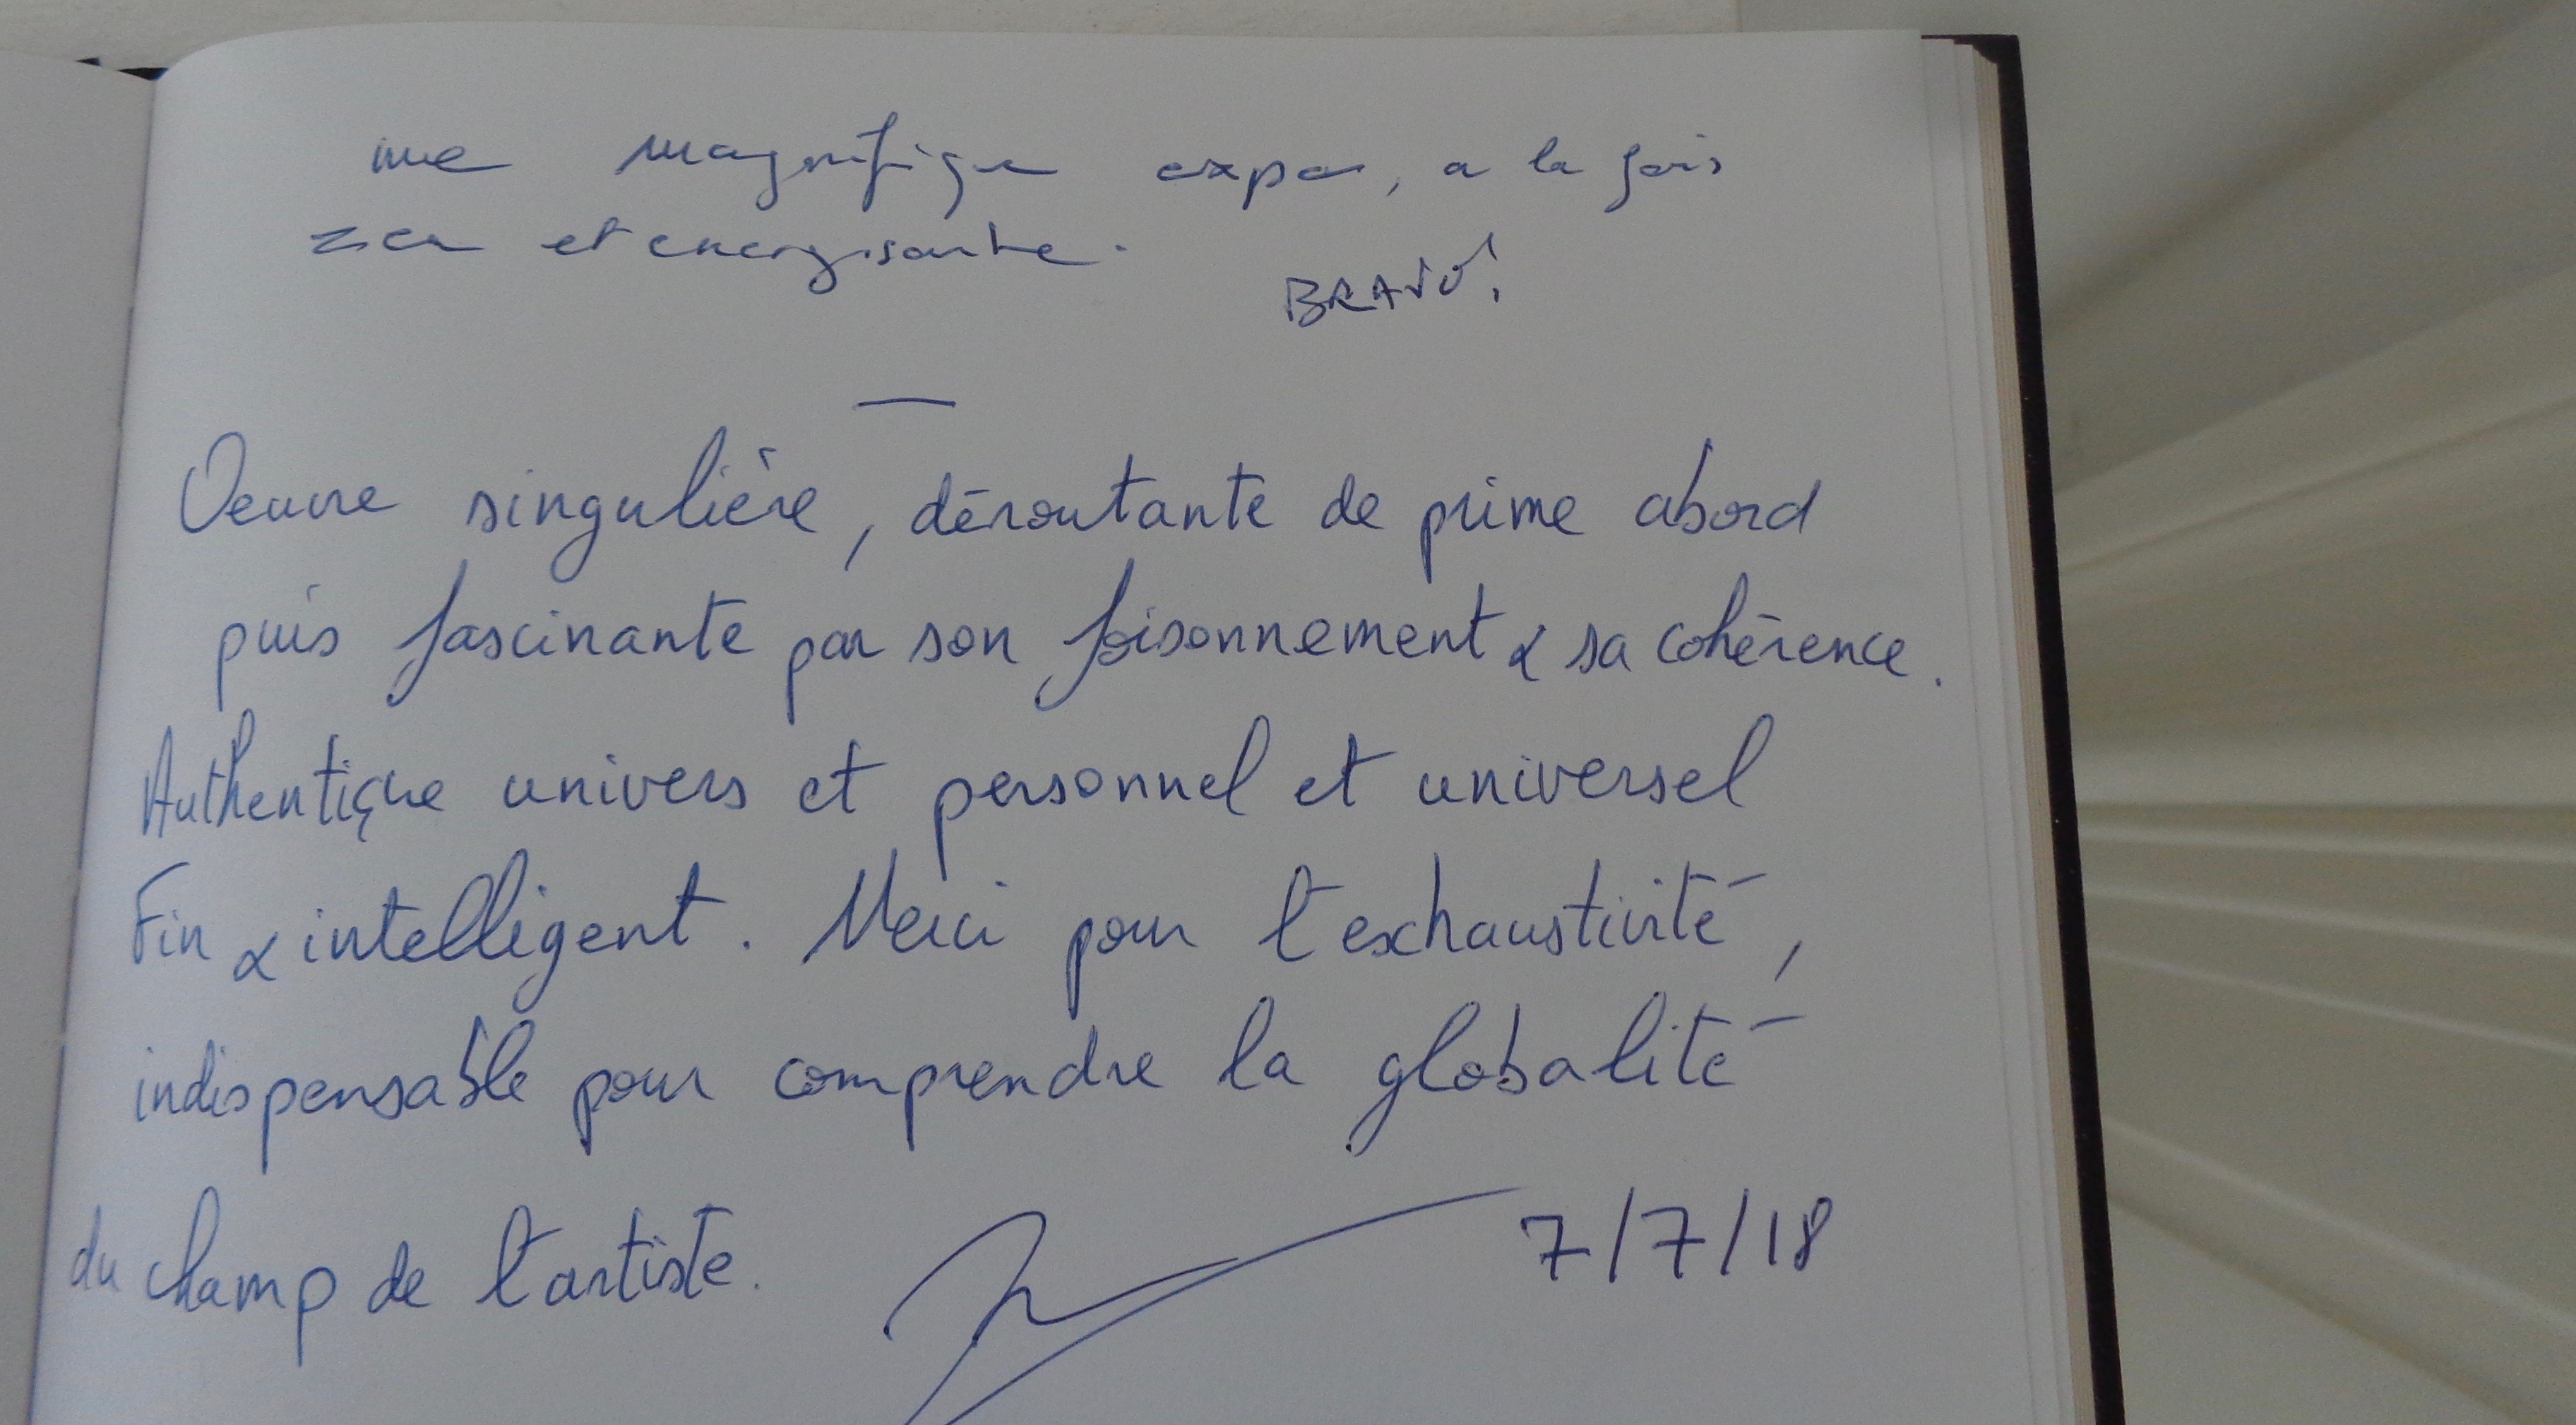 une magnifique expo, a la fois
zen et energisante.
BRAVO!
Oeuvre singulière, déroutante de prime abord
puis fascinante par son foisonnement & sa cohérence.
Authentique univers et personnel et universel
Fin & intelligent. Merci pour l'exhaustivité,
indispensable pour comprendre la globalité
du champ de l'artiste.
7/7/18